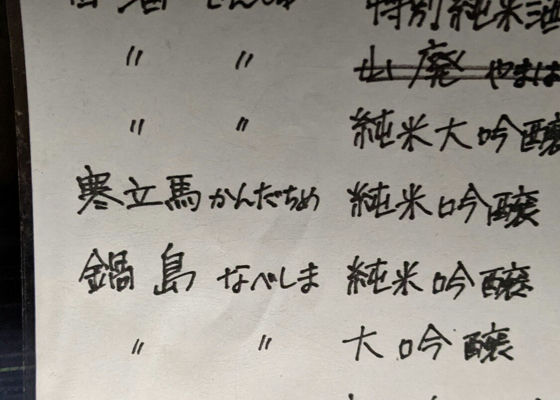 特別純米酒
〃 〃 山廃 やまは
〃 〃 純米大吟醸
寒立馬 かんだちめ 純米吟醸
鍋島 なべしま 純米吟醸
〃 〃 大吟醸